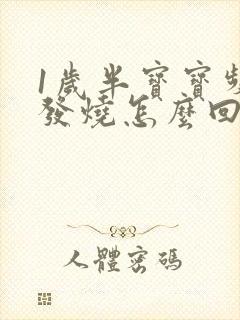 1歲半寶寶頻
發燒怎麼回
人體密碼